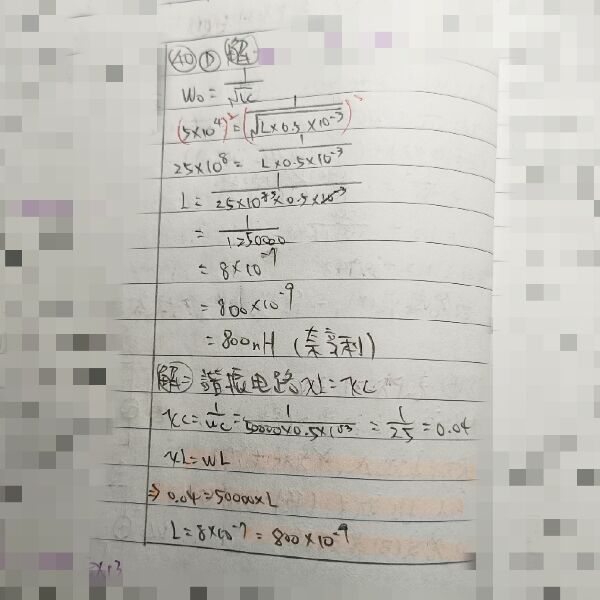 40 D 解一
W₀ = 1/√LC
(5×10⁴)² = (1/√L×0.5×10⁻³)²
25×10⁸ = 1/L×0.5×10⁻³
L = 1/25×10⁸×0.5×10⁻³
= 1/1250000
= 8×10⁻⁷
= 800×10⁻⁹
= 800nH (奈亨利)
解二 諧振电路 XL=XC
XC = 1/WC = 1/50000×0.5×10⁻³ = 1/25 = 0.04
XL = WL
⇒ 0.04 = 50000×L
L = 8×10⁻⁷ = 800×10⁻⁹